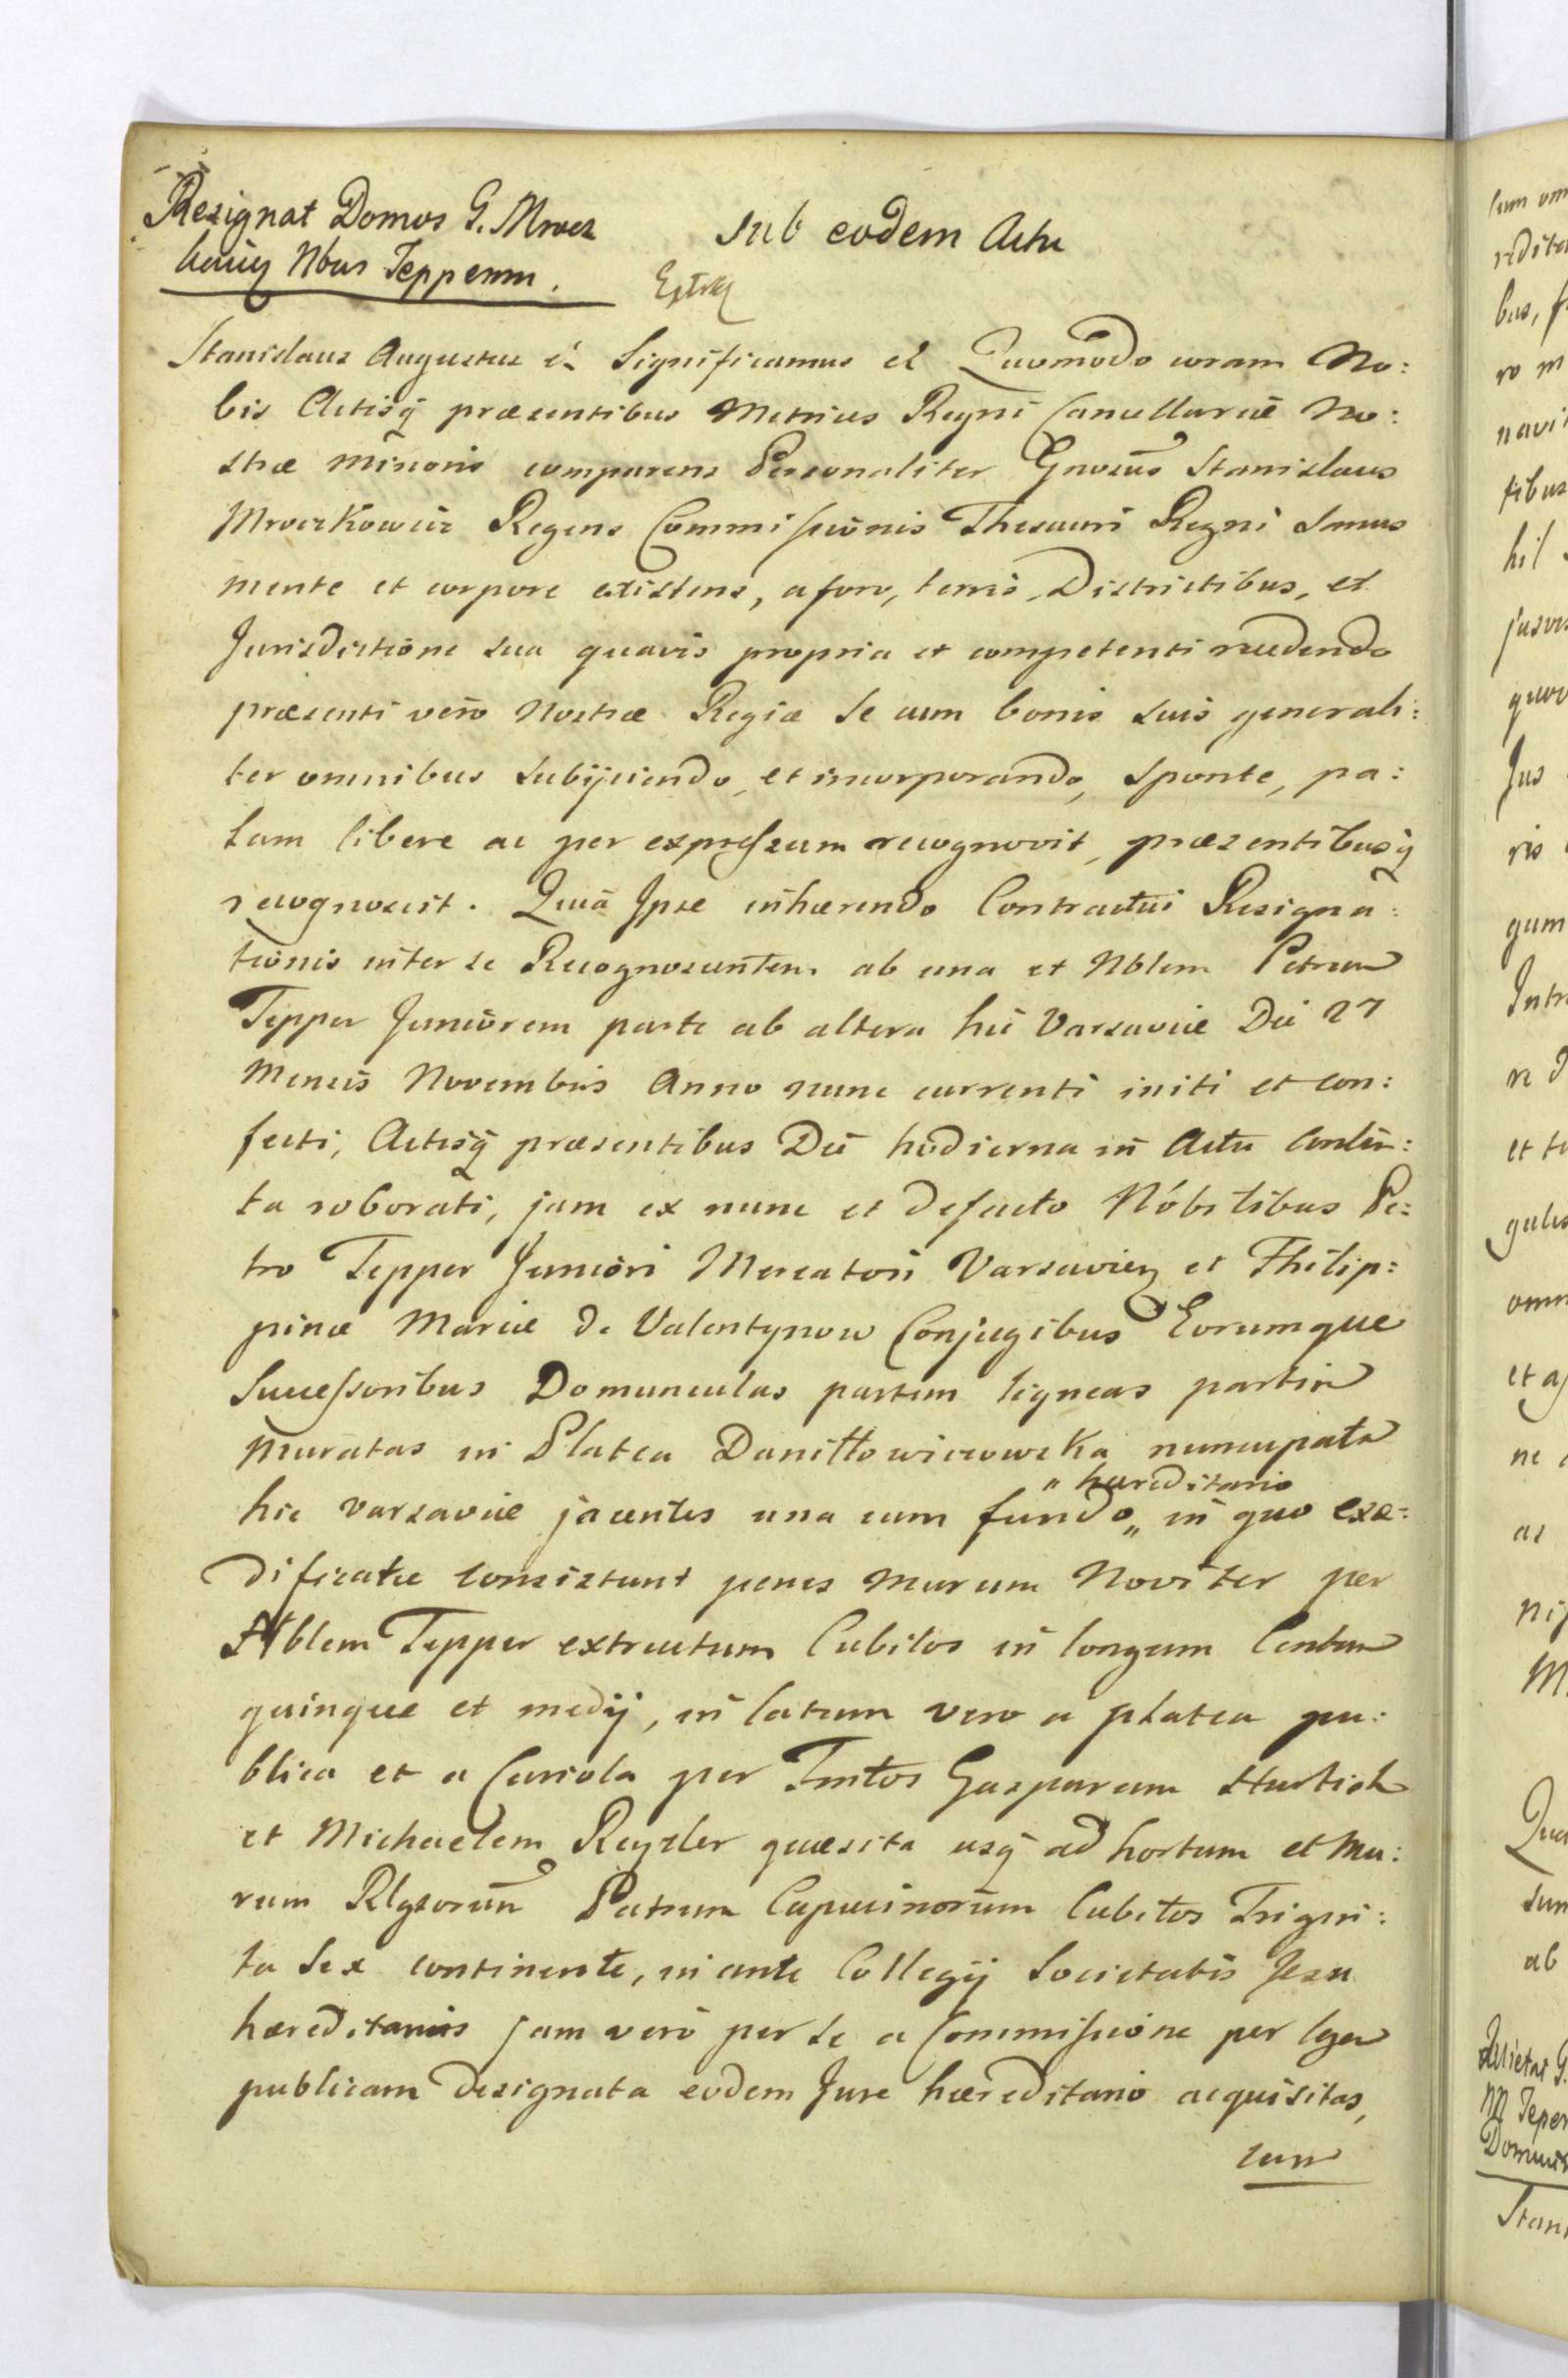 Resignat Domus G. Mrocz
kowicz Nbus Tepperum.
Sub eodem Actu
Stanislaus Augustus &c Significamus et Quomodo coram No:
bis Actisq̃ præsentibus Metrices Regni Cancellariæ No:
stræ minoris comparens Personaliter Gnosus Stanislaus
Mroczkowicz Regens Commissionis Thesauri Regni Sanus
mente et corpore existens, a foro, terris, Districtibus, et
Jurisdictione sua quavis propria et competenti recedendo
præsenti vero Nostræ Regiæ se cum bonis suis generali:
ter omnibus subijciendo, et incorporando, sponte, pa:
lam libere ac per expressum recognovit, præsentibusq̃
recognoscit. Quia Ipse inhærendo Contractui Resigna:
tionis inter se Recognoscentem ab una et Nblem Petrum
Tepper Juniorem parte ab altera hic Varsaviæ Die 27
Mensis Novembris Anno nunc currenti initi et con:
fecti, Actisq̃ præsentibus Die hodierna in Actu conten:
ta roborati, jam ex nunc et defacto Nobilibus Pe:
tro Tepper Juniori Mercatori Varsavien et Philip:
pinæ Mariæ de Valentynow Conjugibus Eorumque
Successoribus Domunculas partim ligneas partim
muratas in Platea Daniłłowiczowska nuncupata
hic Varsaviæ jacentes una cum fundo „ hæreditario „ in quo exæ:
dificatæ consistunt penes murum Noviter per
Nblem Tepper extructum Cubitos in longum Centum
quinque et medij, in latum vero a platea pu:
blica et a Curiola per Fmtos Gasparum Hurtich
et Michaelem Reyzler quæsita usq̃ ad hortum et Mu:
rum Rlgsorum Patrum Capucinorum Cubitos Trigin:
ta Sex continente, in ante Collegij Societatis Jesu
hæreditarias jam vero per se a Commissione per legem
publicam designata eodem Jure hæreditario acquisitas,
cum